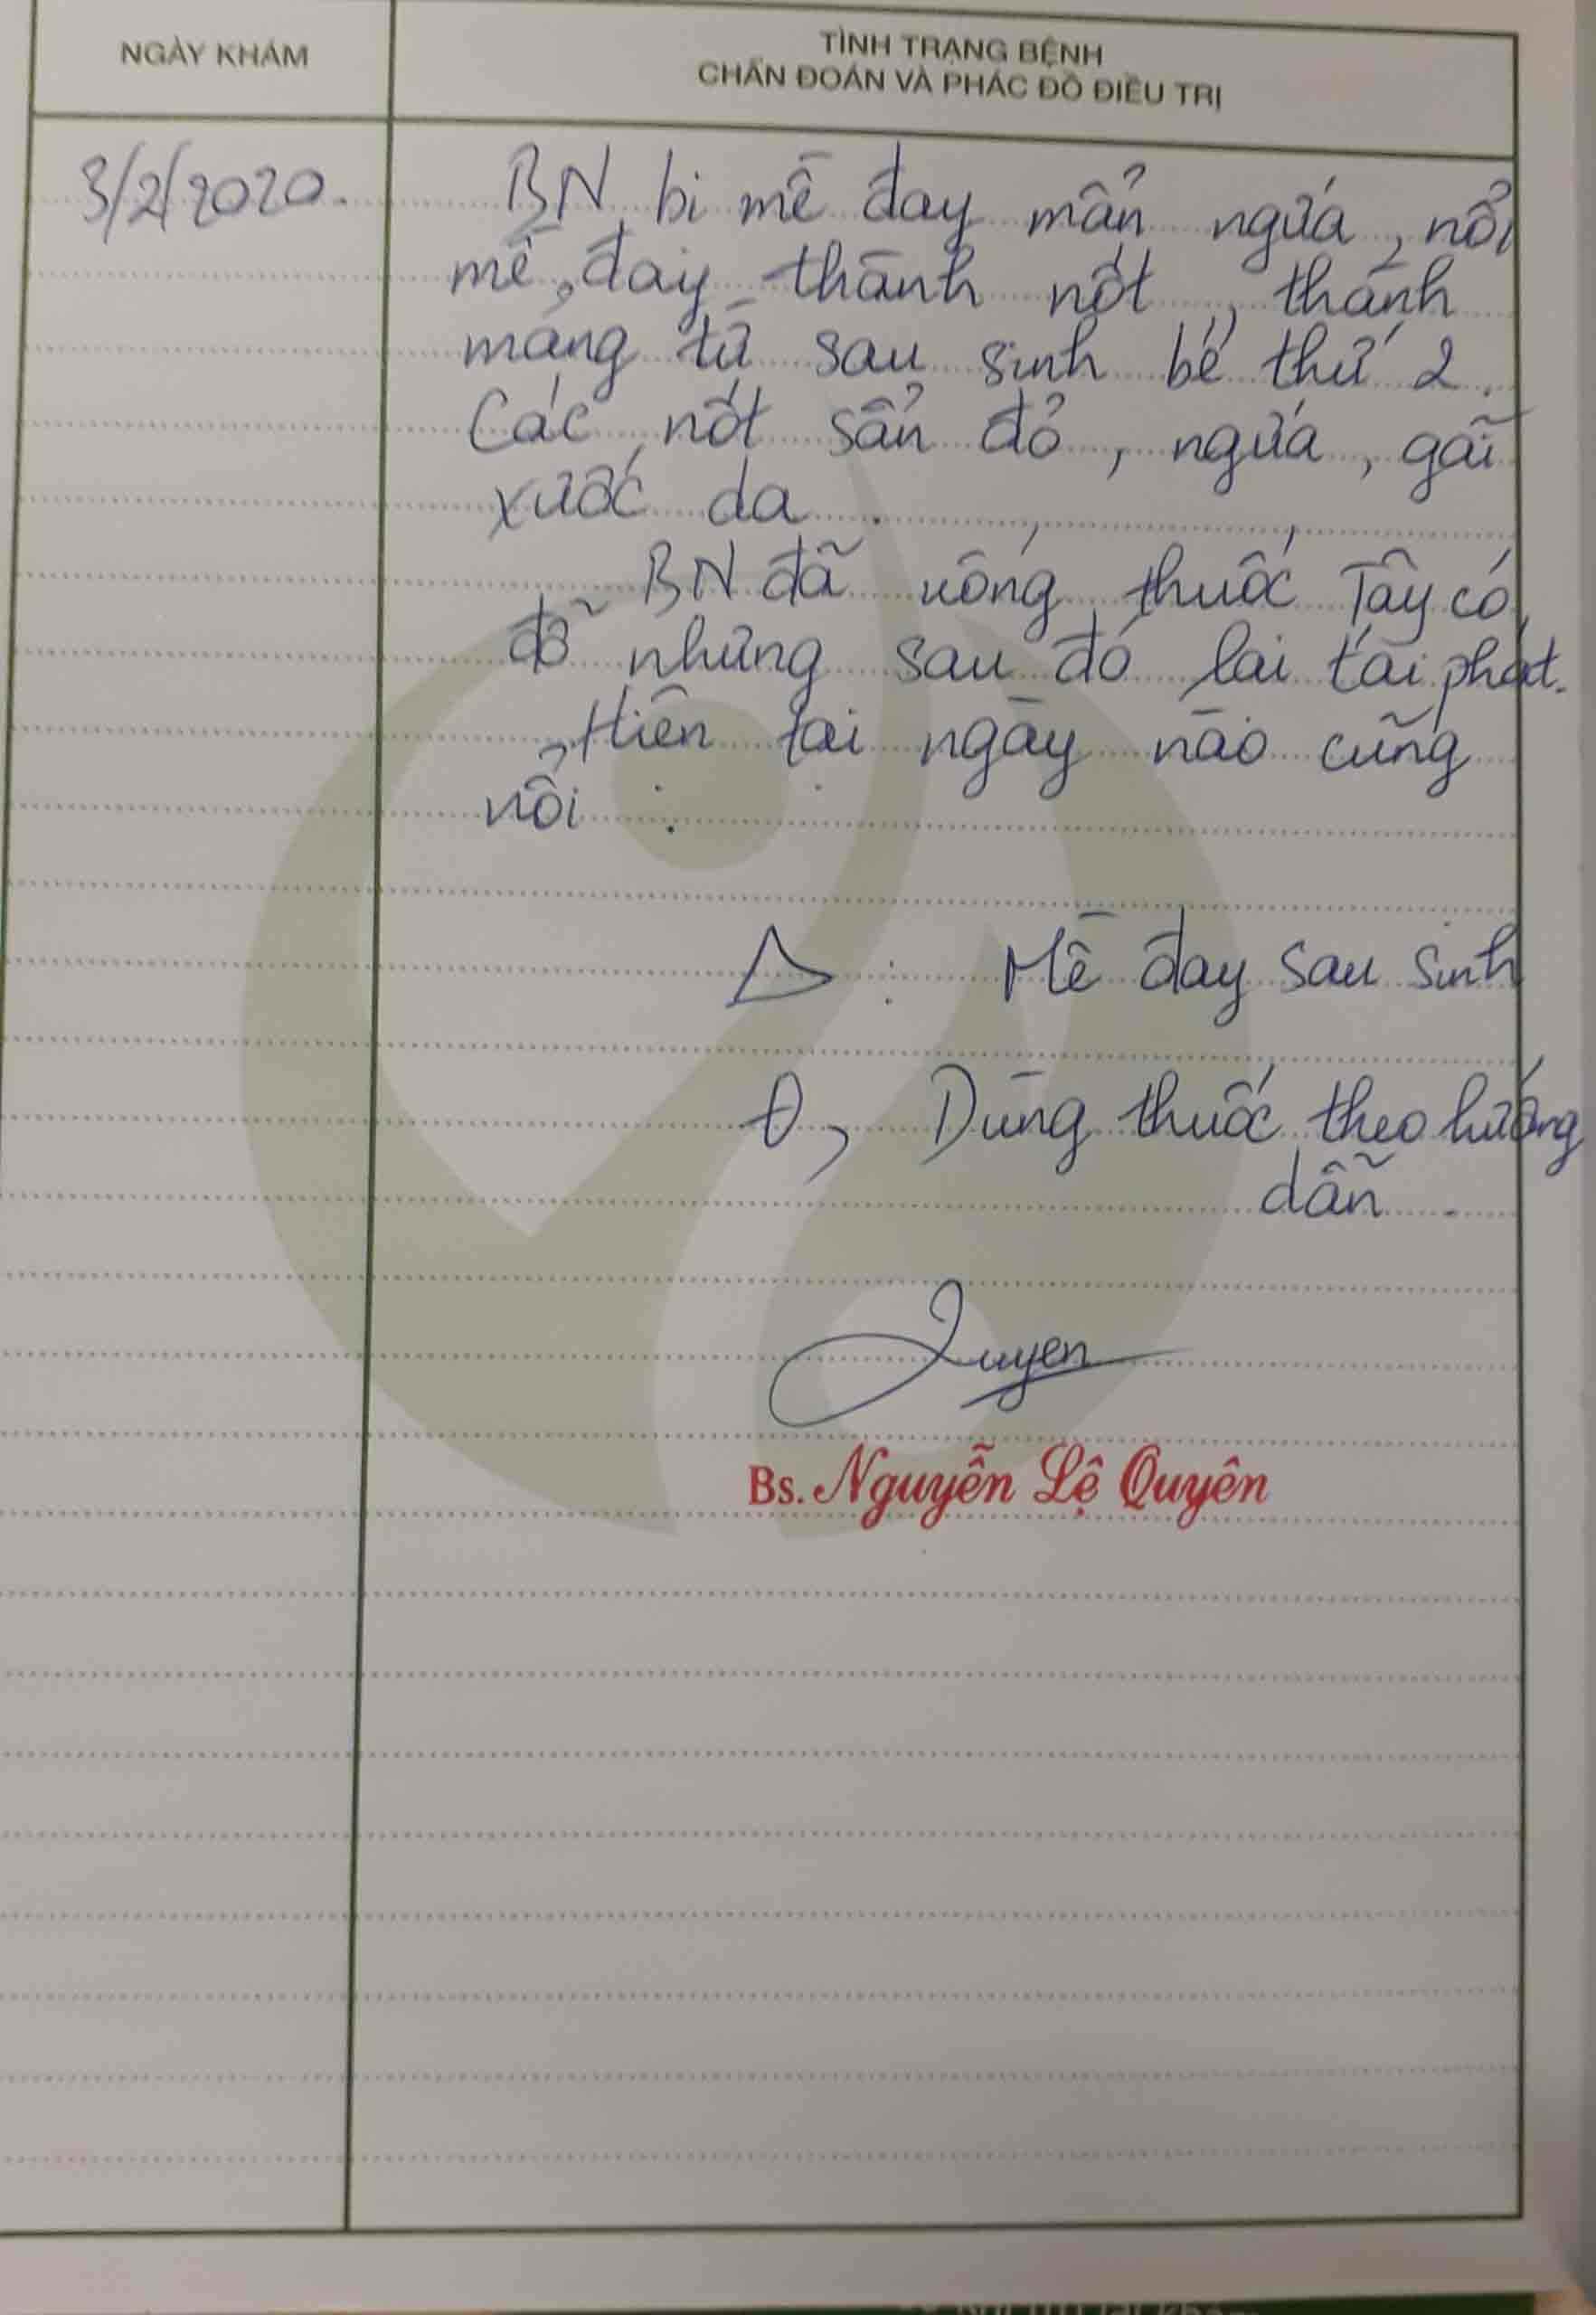 NGÀY KHÁM
TÌNH TRẠNG BỆNH
CHẨN ĐOÁN VÀ PHÁC ĐỒ ĐIỀU TRỊ
3/2/2020.
BN bị mề đay mẩn ngứa, nổi
mề đay thành nốt, thành
mảng từ sau sinh bé thứ 2.
Các nốt sẩn đỏ, ngứa, gãi
xước da.
BN đã uống thuốc Tây có
đỡ nhưng sau đó lại tái phát.
Hiện tại ngày nào cũng
nổi.
Δ: Mề đay sau sinh
Θ, Dùng thuốc theo hướng
dẫn.
Quyen
Bs. Nguyễn Lệ Quyên